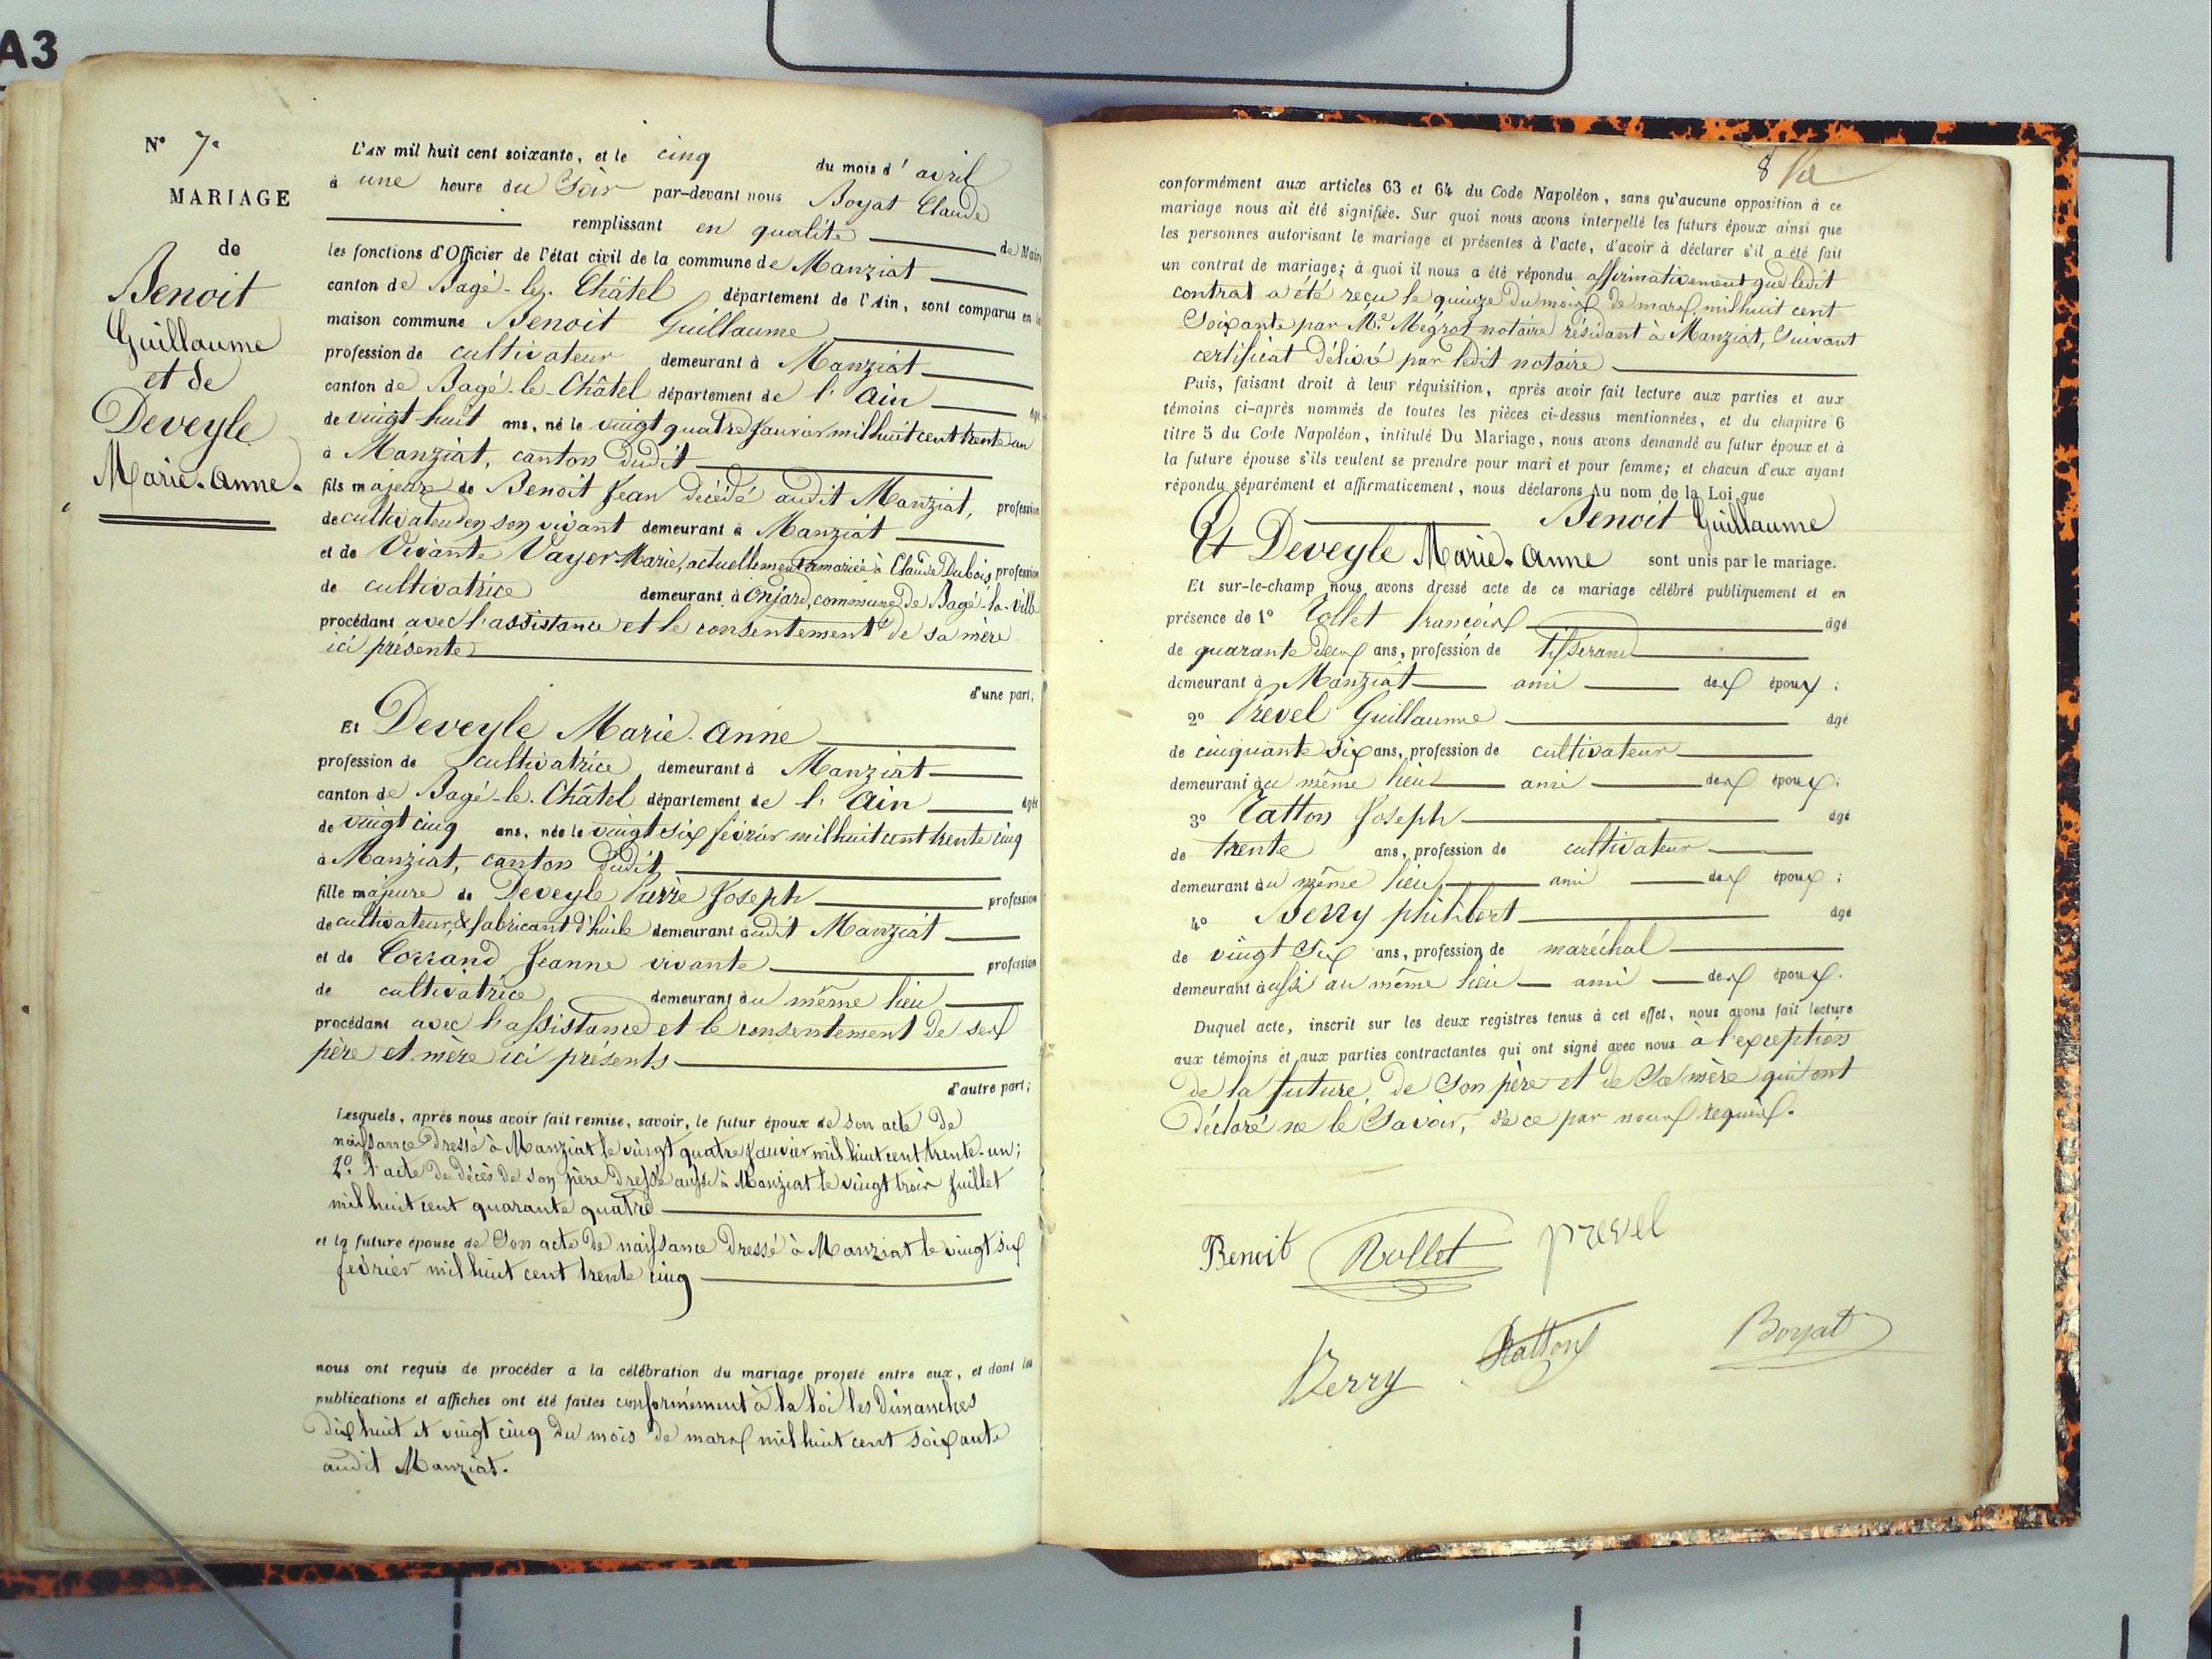 A3
N° 7.
MARIAGE
de
Benoit
Guillaume
et de
Deveyle
Marie-Anne.
L'AN mil huit cent soixante, et le cinq du mois d'avril
à une heure du Soir par-devant nous Boyat Claude
remplissant en qualité de Maire
les fonctions d'Officier de l'état civil de la commune de Manziat
canton de Bagé-le-Châtel département de l'Ain, sont comparus en la
maison commune Benoit Guillaume
profession de cultivateur demeurant à Manziat
canton de Bagé-le-Châtel département de l'Ain âgé
de vingt-huit ans, né le vingt quatre Janvier mil huit cent trente un
à Manziat, canton dudit
fils majeur de Benoit Jean décédé audit Manziat, profession
de cultivateur en son vivant demeurant à Manziat
et de Vivante Vayer Marie, actuellement mariée à Claude Dubois, profession
de cultivatrice demeurant à Onjard, commune de Bagé-la-Ville
procédant avec l'assistance et le consentement de sa mère
ici présente
d'une part,
Et Deveyle Marie-Anne
profession de cultivatrice demeurant à Manziat
canton de Bagé-le-Châtel département de l'Ain âgée
de vingt cinq ans, née le vingt six février mil huit cent trente cinq
à Manziat, canton dudit
fille majeure de Deveyle Pierre Joseph profession
de cultivateur, & fabricant d'huile demeurant audit Manziat
et de Corrand Jeanne vivante profession
de cultivatrice demeurant au même lieu
procédant avec l'assistance et le consentement de ses
père et mère ici présents
d'autre part;
Lesquels, après nous avoir fait remise, savoir, le futur époux de son acte de
naissance dressé à Manziat le vingt quatre Janvier mil huit cent trente-un;
2° l'acte de décès de son père dressé aussi à Manziat le vingt trois Juillet
mil huit cent quarante quatre
et la future épouse de Son acte de naissance dressé à Manziat le vingt six
février mil huit cent trente cinq
nous ont requis de procéder à la célébration du mariage projeté entre eux, et dont les
publications et affiches ont été faites conformément à la loi les Dimanches
dix huit et vingt cinq du mois de mars mil huit cent soixante
audit Manziat.
8
conformément aux articles 63 et 64 du Code Napoléon, sans qu'aucune opposition à ce
mariage nous ait été signifiée. Sur quoi nous avons interpellé les futurs époux ainsi que
les personnes autorisant le mariage et présentes à l'acte, d'avoir à déclarer s'il a été fait
un contrat de mariage; à quoi il nous a été répondu affirmativement que ledit
contrat a été reçu le quinze du mois de mars mil huit cent
Soixante par Me. Mégrat notaire résidant à Manziat, Suivant
certificat délivré par ledit notaire
Puis, faisant droit à leur réquisition, après avoir fait lecture aux parties et aux
témoins ci-après nommés de toutes les pièces ci-dessus mentionnées, et du chapitre 6
titre 5 du Code Napoléon, intitulé Du Mariage, nous avons demandé au futur époux et à
la future épouse s'ils veulent se prendre pour mari et pour femme; et chacun d'eux ayant
répondu séparément et affirmativement, nous déclarons Au nom de la Loi que
Benoit Guillaume
Et Deveyle Marie-Anne sont unis par le mariage.
Et sur-le-champ nous avons dressé acte de ce mariage célébré publiquement et en
présence de 1° Rollet François âgé
de quarante deux ans, profession de tisserand
demeurant à Manziat ami des époux;
2° Prevel Guillaume âgé
de cinquante six ans, profession de cultivateur
demeurant au même lieu ami des époux;
3° Catton Joseph âgé
de trente ans, profession de cultivateur
demeurant au même lieu ami des époux;
4° Berry philibert âgé
de vingt six ans, profession de maréchal
demeurant aussi au même lieu ami des époux.
Duquel acte, inscrit sur les deux registres tenus à cet effet, nous avons fait lecture
aux témoins et aux parties contractantes qui ont signé avec nous à l'exception
de la future, de Son père et de Sa mère qui ont
déclaré ne le Savoir, de ce par nous requis.
Benoit Rollet prevel
Berry Catton Boyat